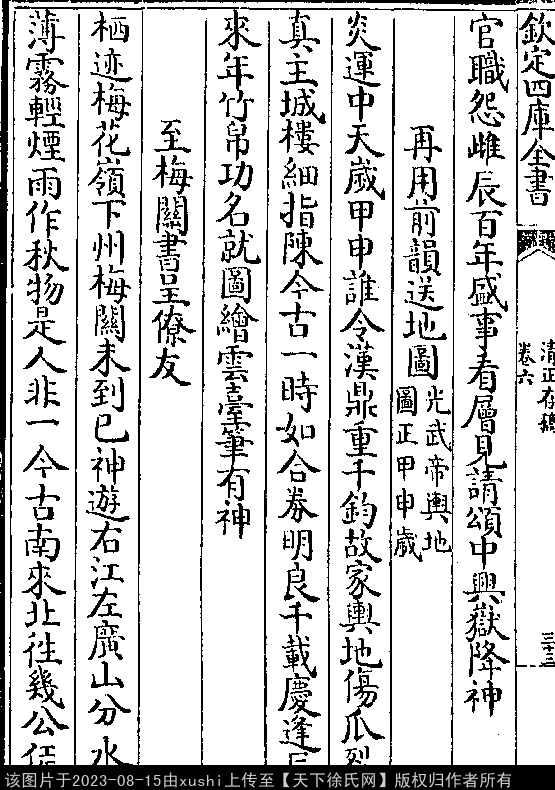 欽定四庫全書
清正存稿
卷六
三十三
官職怨雌辰百年盛事看層見請頌中興嶽降神
再用前韻送地圖
光武帝輿地
圖正甲申歲
炎運中天歲甲申誰令漢鼎重千鈞故家輿地傷瓜
真主城樓細指陳今古一時如合券明良千載慶逢
來年竹帛功名就圖繪雲臺筆有神
至梅關書呈僚友
栖迹梅花嶺下州梅關未到已神遊右江左廣山分水
薄霧輕煙雨作秋物是人非一今古南來北徃幾公
该图片于2023-08-15由xushi上传至【天下徐氏网】版权归作者所有